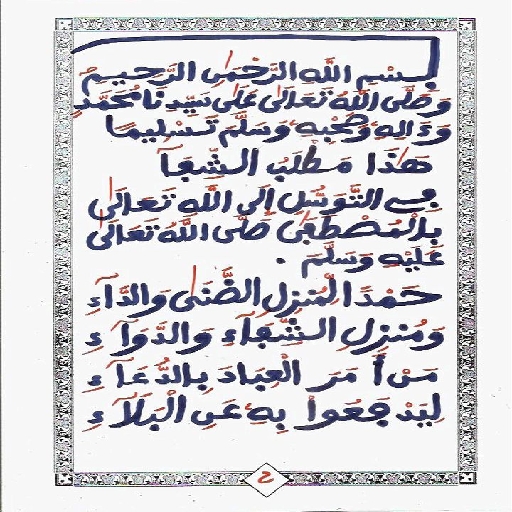 بِسْمِ اللَّهِ الرَّحْمَٰنِ الرَّحِيمِ
وَصَلَّى اللَّهُ تَعَالَى عَلَى سَيِّدِنَا مُحَمَّدٍ
وَءَالِهِ وَصَحْبِهِ وَسَلَّمَ تَسْلِيمًا
هَذَا مَطْلَبُ الشِّفَآ
فِي التَّوَسُّلِ إِلَى اللَّهِ تَعَالَى
بِالْمُصْطَفَى صَلَّى اللَّهُ تَعَالَى
عَلَيْهِ وَسَلَّمَ .
حَمْدًا لِّمُنزِلِ الضَّنَى وَالدَّآءِ
وَمُنزِلِ الشِّفَآءِ وَالدَّوَآءِ
مَنْ أَمَرَ الْعِبَادَ بِالدُّعَآءِ
لِيَدْفَعُوا بِهِ عَنِ الْبَلَآءِ